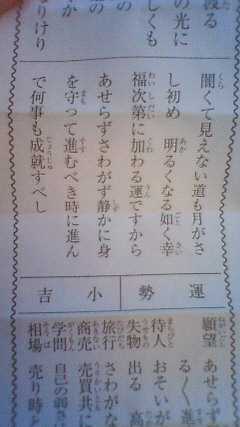 渡る
の光に
しくも
なりけり
闇くて見えない道も月がさ
し初め 明るくなる如く幸
福次第に加わる運ですから
あせらずさわがず静かに身
を守って進むべき時に進ん
で何事も成就すべし
運勢
小吉
願望 あせらず
るく進
待人 おそいが
失物 出る 高
旅行 さわがな
商売 売買共に
学問 自己の弱さに
相場 売り時と